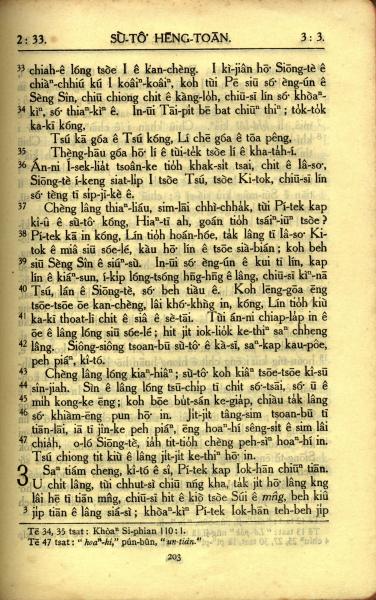 2 : 33. SÙ-TÔ͘ HĒNG-TOĀN. 3 : 3.
33 chiah-ê lóng tsòe I ê kan-chèng. I kì-jiân hō͘ Siōng-tè ê
chiàⁿ-chhiú kú I koâiⁿ-koâiⁿ, koh tùi Pē siū só͘ èng-ún ê
Sèng Sîn, chiū chiong chit ê kàng-lo̍h, chiū-sī lín só͘ khòaⁿ-
34 kìⁿ, só͘ thiaⁿ-kìⁿ ê. In-ūi Tāi-pit bē bat chiūⁿ thiⁿ ; to̍k-to̍k
ka-kī kóng,
Tsú kā góa ê Tsú kóng, Lí chē góa ê tōa pêng,
35 Thèng-hāu góa hō͘ lí ê tùi-te̍k tsòe lí ê kha-ta̍h-í.
36 Án-ni Í-sek-lia̍t tsoân-ke tio̍h khak-sit tsai, chit ê Iâ-so͘,
Siōng-tè í-keng siat-li̍p I tsòe Tsú, tsòe Ki-tok, chiū-sī lín
só͘ tèng tī si̍p-jī-kè ê.
37 Chèng lâng thiaⁿ-liáu, sim-lāi chhì-chha̍k, tùi Pí-tek kap
kî-û ê sù-tô͘ kóng, Hiaⁿ-tī ah, goán tio̍h tsáiⁿ-iūⁿ tsòe ?
38 Pí-tek kā in kóng, Lín tio̍h hoán-hóe, ta̍k lâng tī Iâ-so͘ Ki-
tok ê miâ siū sóe-lé, kàu hō͘ lín ê tsōe sià-bián ; koh beh
39 siū Sèng Sîn ê siúⁿ-sù. In-ūi só͘ èng-ún ê kui tī lín, kap
lín ê kiáⁿ-sun, í-ki̍p lóng-tsóng hn̄g-hn̄g ê lâng, chiū-sī kìⁿ-nā
40 Tsú, lán ê Siōng-tè, só͘ beh tiàu ê. Koh lēng-gōa ēng
tsōe-tsōe ōe kan-chèng, lâi khó͘-khǹg in, kóng, Lín tio̍h kiù
41 ka-kī thoat-lī chit ê siâ ê sè-tāi. Tùi án-ni chiap-la̍p in ê
ōe ê lâng lóng siū sóe-lé ; hit ji̍t iok-lio̍k ke-thiⁿ saⁿ chheng
42 lâng. Siông-siông tsoan-bū sù-tô͘ ê kà-sī, saⁿ-kap kau-pôe,
peh piáⁿ, kî-tó.
43 Chèng lâng lóng kiaⁿ-hiâⁿ ; sù-tô͘ koh kiâⁿ tsōe-tsōe kî-sū
44 sîn-jiah. Sìn ê lâng lóng tsū-chi̍p tī chit só͘-tsāi, só͘ ū ê
45 mi̍h kong-ke ēng ; koh bōe bu̍t-sán ke-gia̍p, chiàu ta̍k lâng
46 só͘ khiàm-ēng pun hō͘ in. Ji̍t-ji̍t tâng-sim tsoan-bū tī
tiān-lāi, iā tī jîn-ke peh piáⁿ, ēng hoaⁿ-hí sêng-si̍t ê sim lâi
47 chia̍h, o-ló Siōng-tè, ia̍h tit-tio̍h chèng peh-sìⁿ hoaⁿ-hí in.
Tsú chiong tit kiù ê lâng ji̍t-ji̍t ke-thiⁿ hō͘ in.
3 Saⁿ tiám cheng, kî-tó ê sî, Pí-tek kap Iok-hān chiūⁿ tiān.
2 U chit lâng, tùi chhut-sì chiū nńg kha, ta̍k ji̍t hō͘ lâng kng
lâi hē tī tiān mn̂g, chiū-sī hit ê kiò tsòe Súi ê mn̂g, beh kiû
3 ji̍p tiān ê lâng siá-sì ; khòaⁿ-kìⁿ Pí-tek Iok-hān teh-beh ji̍p
Tē 34, 35 tsat : Khòaⁿ Si-phian 110 : 1.
Tē 47 tsat : “ hoaⁿ-hí,” pún-bûn, “ un-tián.”
203